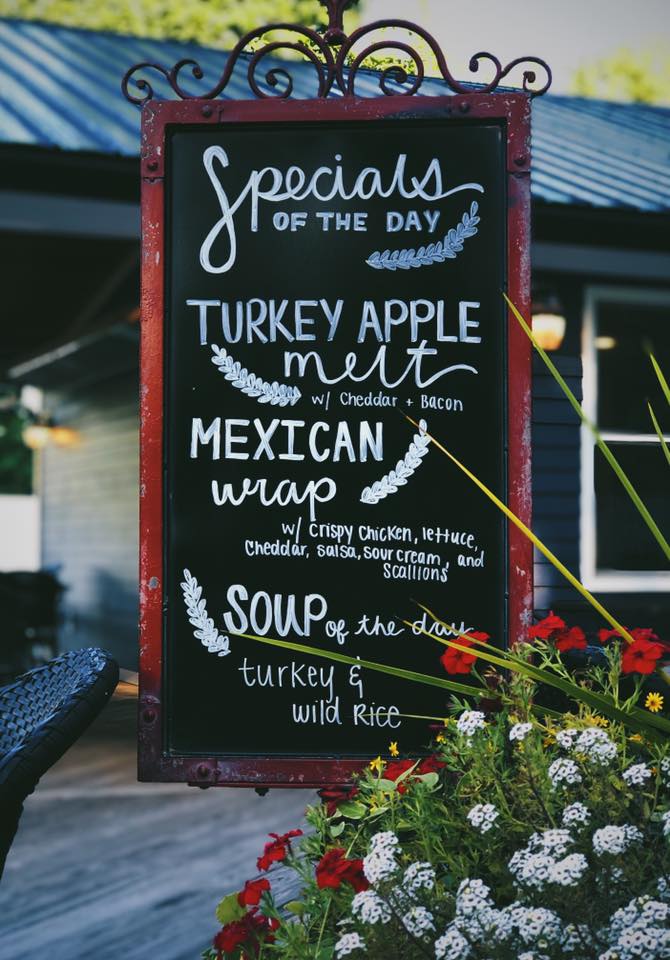 Specials
OF THE DAY
TURKEY APPLE
melt
w/ Cheddar + Bacon
MEXICAN
wrap
w/ crispy chicken, lettuce,
Cheddar, salsa, sour cream, and
scallions
SOUP of the day
turkey &
wild Rice